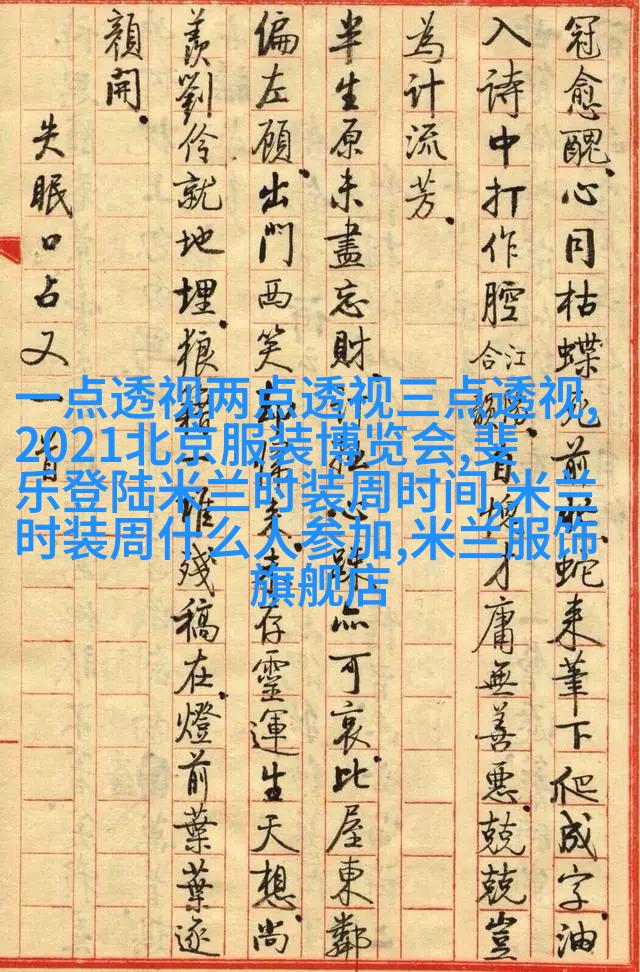 冠愈醜.心同枯蝶前蛇来筆下爬成字.油
入詩中打作腔合江自愧才庸無善惡.兢兢豈
為計流芳.
半生原未盡忘財.心疎亦可哀.比屋東鄰
偏左顧.出門西笑未存靈運生天想.尚
羨劉伶就地埋.狼籍堆殘稿在.燈前葉葉逐
顔開.
失眠口占又一首
一点透视两点透视三点透视,
2021北京服装博览会,斐
乐登陆米兰时装周时间,米兰
时装周什么人参加,米兰服饰
旗舰店